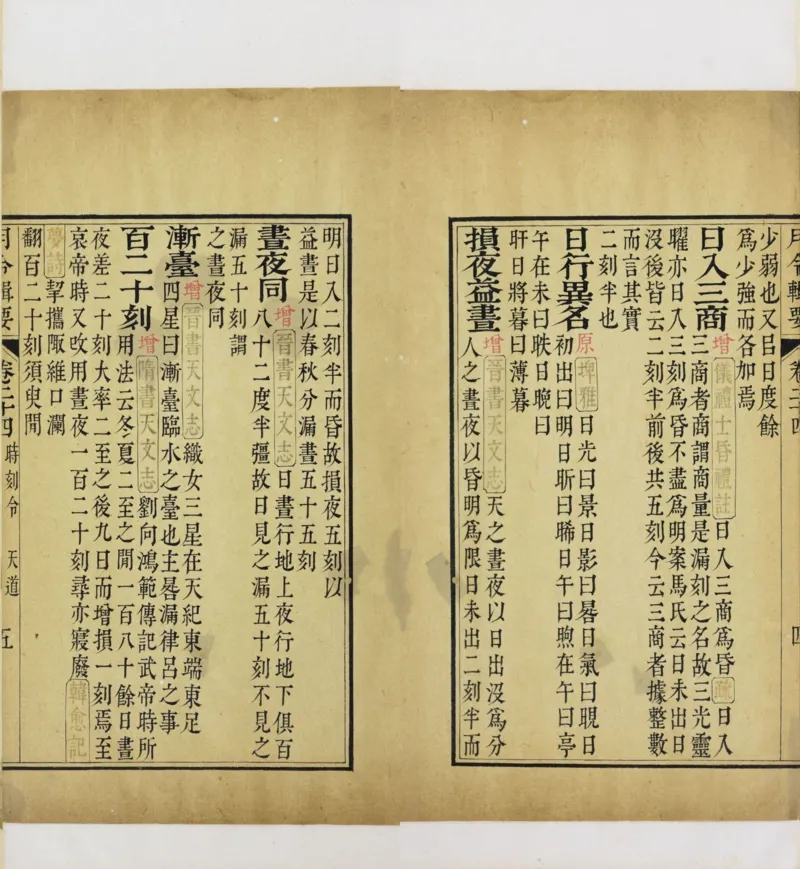 月令輯要 卷二十四 四
少弱也又吕日度餘
為少強而各加焉
日入三商 增 儀禮士昏禮註 日入三商為昏 疏 日入
三商者商謂商量是漏刻之名故三光靈
曜亦日入三刻為昏不盡為明案馬氏云日未出日
沒後皆云二刻半前後共五刻今云三商者據整數
而言其實
二刻半也
日行異名 原 埤雅 日光曰景日影曰晷日氣曰晛日
初出曰明日昕曰晞日午曰煦在午曰亭
午在未曰昳日晚曰
旰日將暮曰薄暮
損夜益晝 增 晉書天文志 天之晝夜以日出沒為分
人之晝夜以昏明為限日未出二刻半而
明日入二刻半而昏故損夜五刻以
益晝是以春秋分漏晝五十五刻
晝夜同 增 晉書天文志 日晝行地上夜行地下俱百
八十二度半彊故日見之漏五十刻不見之
漏五十刻謂
之晝夜同
漸臺 增 晉書天文志 織女三星在天紀東端東足
四星曰漸臺臨水之臺也主晷漏律呂之事
百二十刻 增 隋書天文志 劉向鴻範傳記武帝時所
用法云冬夏二至之閒一百八十餘日晝
夜差二十刻大率二至之後九日而增損一刻焉至
哀帝時又攺用晝夜一百二十刻尋亦寢廢 韓愈記
夢詩 挈攜陬維口瀾
翻百二十刻須臾閒
月令輯要 卷二十四 時刻令 天道 五